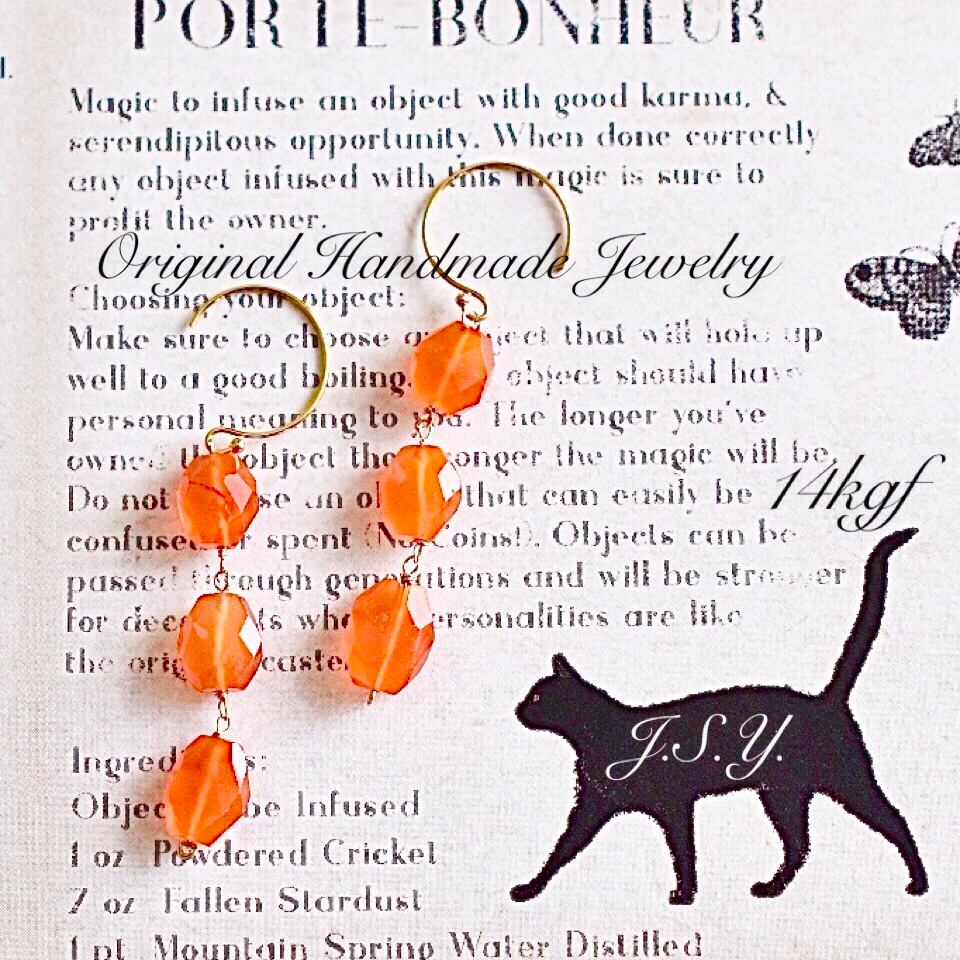 PORTE-BONHEUR
Magic to infuse an object with good karma, &
serendipitous opportunity. When done correctly
any object infused with this magic is sure to
profit the owner.
Original Handmade Jewelry
Choosing your object:
Make sure to choose an object that will hold up
well to a good boiling. object should have
personal meaning to you. The longer you've
owned the object the longer the magic will be.
Do not use an that can easily be
14kgf
confused or spent (No Coins!). Objects can be
passed through generations and will be stronger
for whose personalities are like
the original caster.
J.S.Y.
Ingredients:
Object to be Infused
1 oz Powdered Cricket
7 oz Fallen Stardust
1 pt Mountain Spring Water Distilled